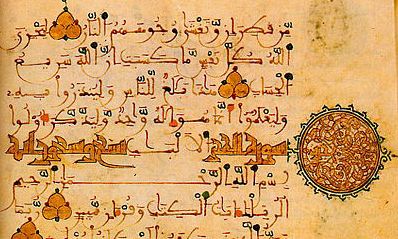 من قطران وتغشى وجوههم النار ليجزى
الله كل نفس ما كسبت إن الله سريع
الحساب هذا بلغ للناس ولينذروا به
وليعلموا أنما هو إله وحد وليذكر أولوا
سورة الحجر الألبب
بسم الله الرحمن الرحيم
الر تلك ءايت الكتب وقرءان مبين